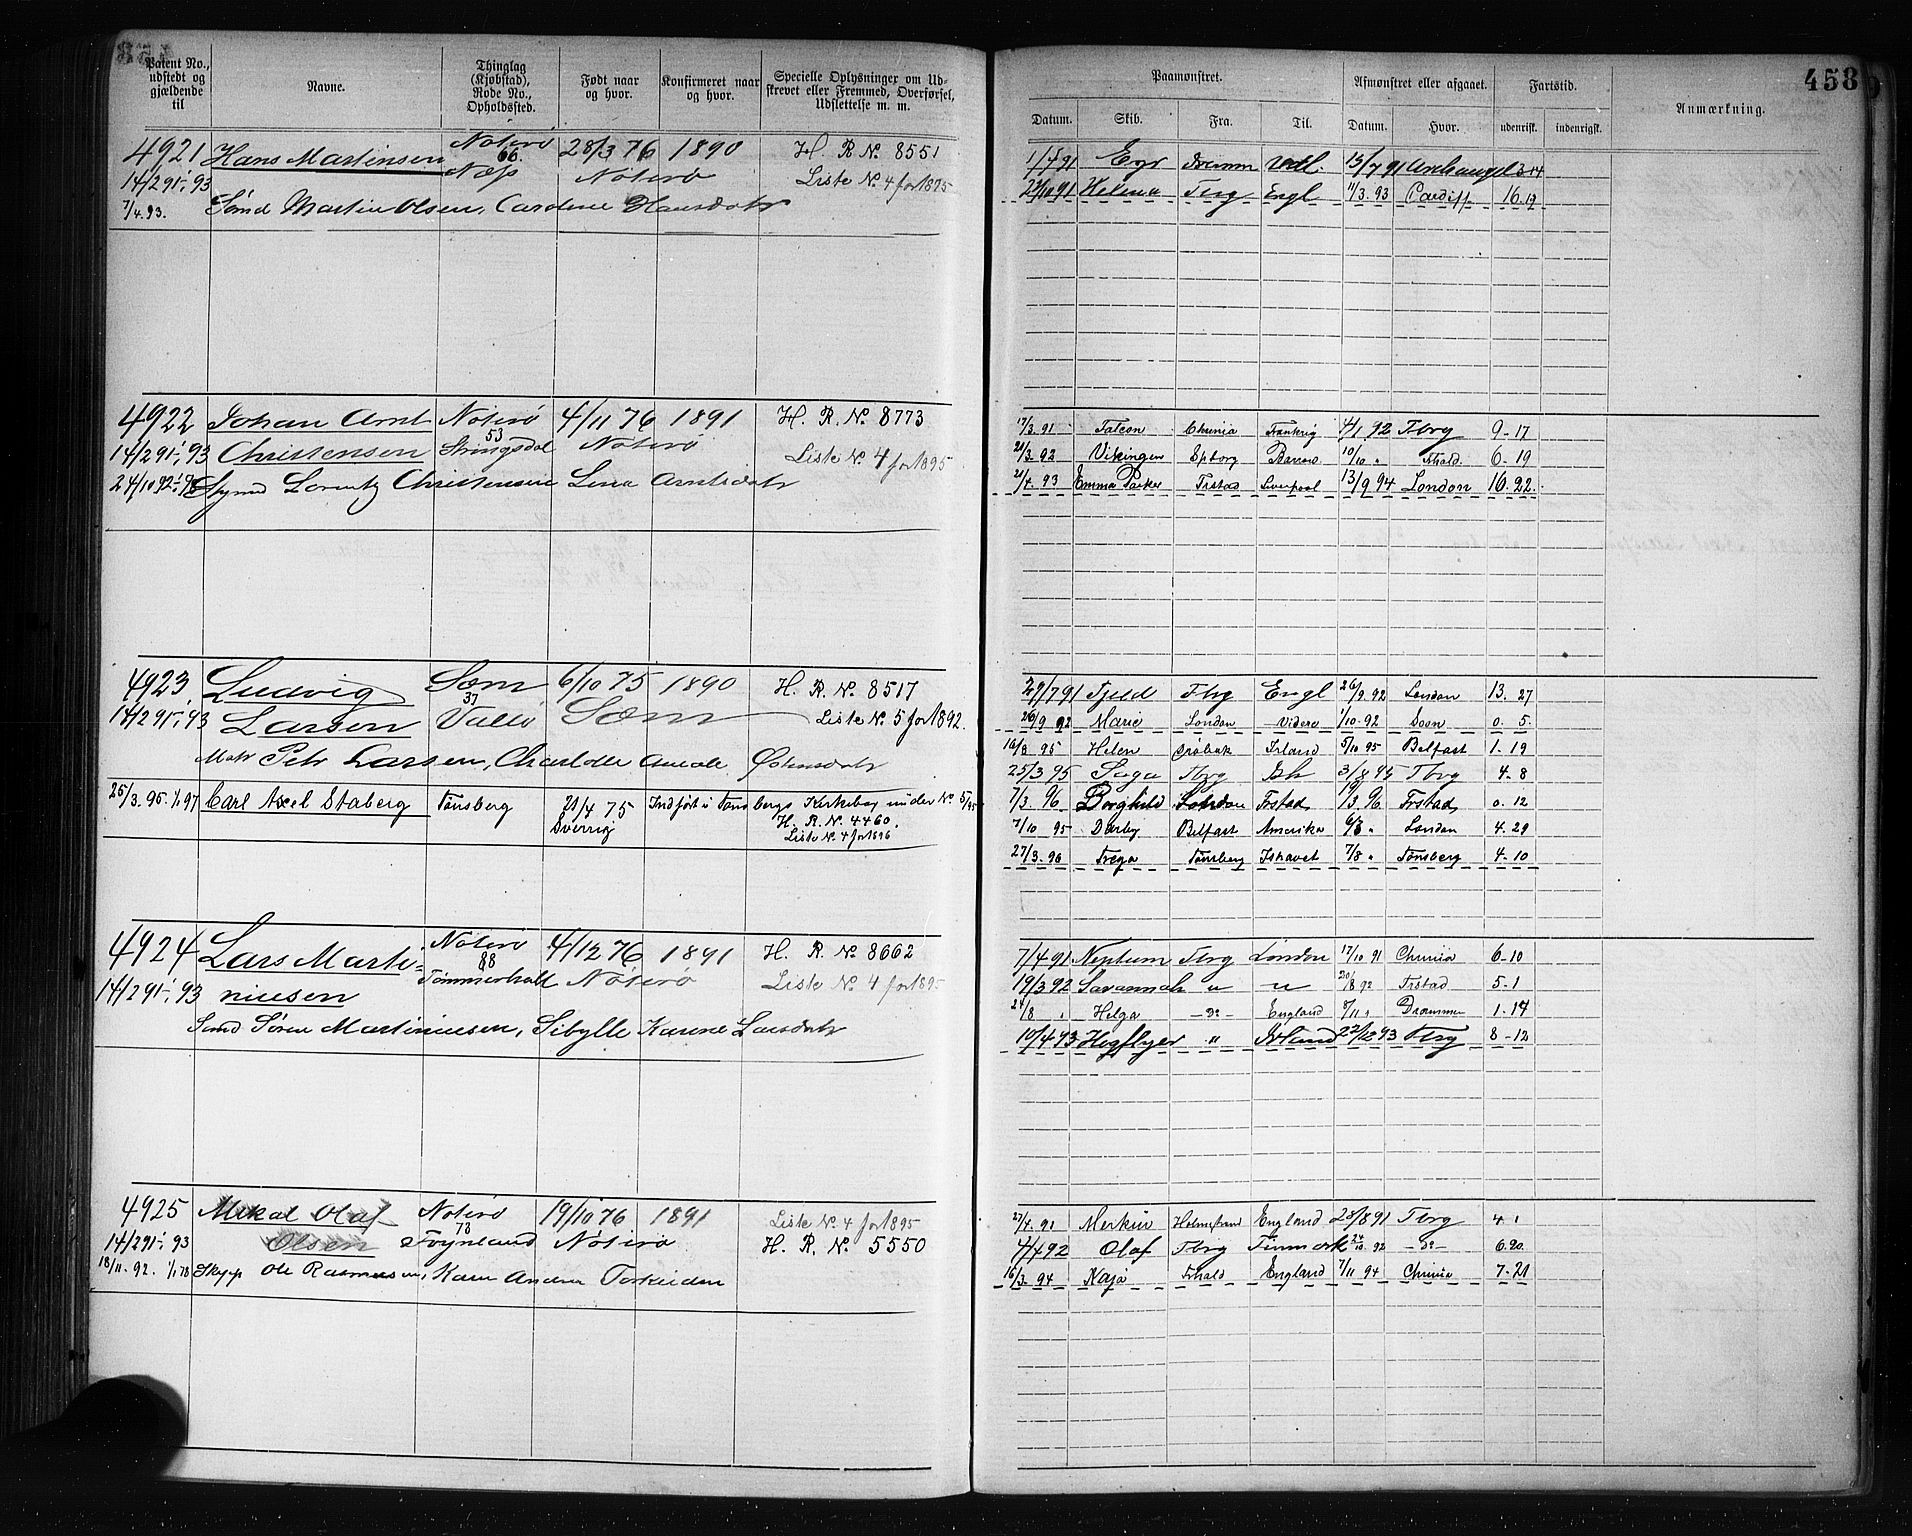 458
Patent No., udstedt og gjældende til
Navne.
Thinglag (Kjøbstad), Rode No., Opholdssted.
Født naar og hvor.
Konfirmeret naar og hvor.
Specielle Oplysninger om Udskrevet eller Fremmed, Overførsel, Udslettelse m. m.
Paamønstret.
Afmønstret eller afgaaet.
Fartstid.
Anmærkning.
Datum. Skib. Fra. Til. Datum. Hvor. udenrigs. indenrigsk.
4921 Hans Martinsen Nøterø 66. 28/3 76 1890 H. R. No. 8551
14/2 91-1/1 93 Næs Nøterø Liste No. 4 for 1895
7/4 93. Sømd Martin Olsen, Hansdatr
1/4 91 13/7 91 Archangel 3 14
Helena Tbrg Engl 11/3 93 Cardiff 16. 19
4922 Johan Arnt Nøterø 4/11 76 1891 H. R. No. 8773
14/2 91-1/1 93 Christensen 53 Nøterø Liste No. 4 for 1895
Lorentz Christensen Lina Arntsdatr
17/3. 91 Falcon Chrinia Frankrig 4/1 92 Tbrg 9-17
21/3. 92 Vikingen Barrow 10/10 " Fhald. 6-19
21/4. 93 Emma Parker Frstad Liverpool 13/9 94 London 16. 22.
4923 Ludvig Sæm 6/10 75 1890 H. R. No. 8517
14/2 91-1/1 93 Larsen 37 Vallø Sæm Liste No. 5 for 1892.
Matr Petr Larsen, Charlotte Amalie
25/3. 95. 1/1 97 Carl Axel Staberg Tønsberg 21/4 75 Indført i Tønsbergs Kirkebog under No. 5/95
Sverrig H. R. No. 4460.
Liste No. 4 for 1896
29/7 91 Fjeld Tbrg Engl 26/9. 92 London 13. 27
26/9 92 Marie London Videre 1/10. 92 0. 5.
16/8 95 Helen Drøbak Irland 5/10 95 Belfast 1. 19
25/3 95 Saga Tbrg Ish 3/8 95 Tbrg 4. 8
7/3. 96 Borghild London Frstad, 19/3. 96 Frstad, 0. 12
7/10 95 Darby Belfast Amerika 6/3 " London 4. 29
27/3. 96 Freya Tønsberg Ishavet 7/8 " Tønsberg 4. 10
4924 Lars Marti- Nøterø 4/12 76 1891 H. R. No. 8662
14/2 91-1/1 93 niusen 88 Tømmerholt Nøterø Liste No. 4 for 1895
Sømd Søren Martiniusen, Sibylle Karine Larsdatr
7/4 91 Neptum Tbrg London 17/10 91 Chrinia 6-10
19/3 92 Savannah " " 20/8 92 Frstad 5-1
24/8 " Helga -Do- England 8/11 " Drammen 1-14
10/4 93 Highflyer " Irland 22/12 93 Tbrg 8-12
4925 Mikal Olaf Nøterø 19/10 76 1891 Liste No. 4 for 1895
14/2 91-1/1 93 Olsen 78 Føynland Nøterø H. R. No. 5550
18/11. 92. Skipp Ole Rasmussen, Karen Andrea
27/4. 91 Merkur Holmestrand England 28/8 91 Tbrg 4 1
4/4 92 Olaf Tbrg Finmark 24/10. 92 -Do- 6. 20.
16/3. 94 Naja Frhald England 7/11 94 Chrinia 7-21